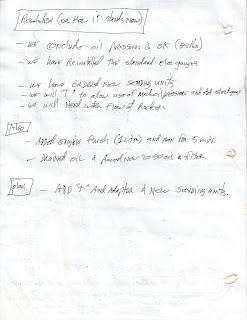 Resolution (or How it stands now)
- we conclude oil pressure is OK (85lbs)
- we have Reinstalled the standard elec gauges
- we have ordered new sending units
- we will "T" to allow use of mechanical pressure and std elect gauge
- we will need watch flow at Rocker
Also
- Added engine flush (1 Litre) and ran for 5 min.
- Drained oil & Added new 20-50 oil & filter
plan
- ADD "T" And Adaptor & New sending units.